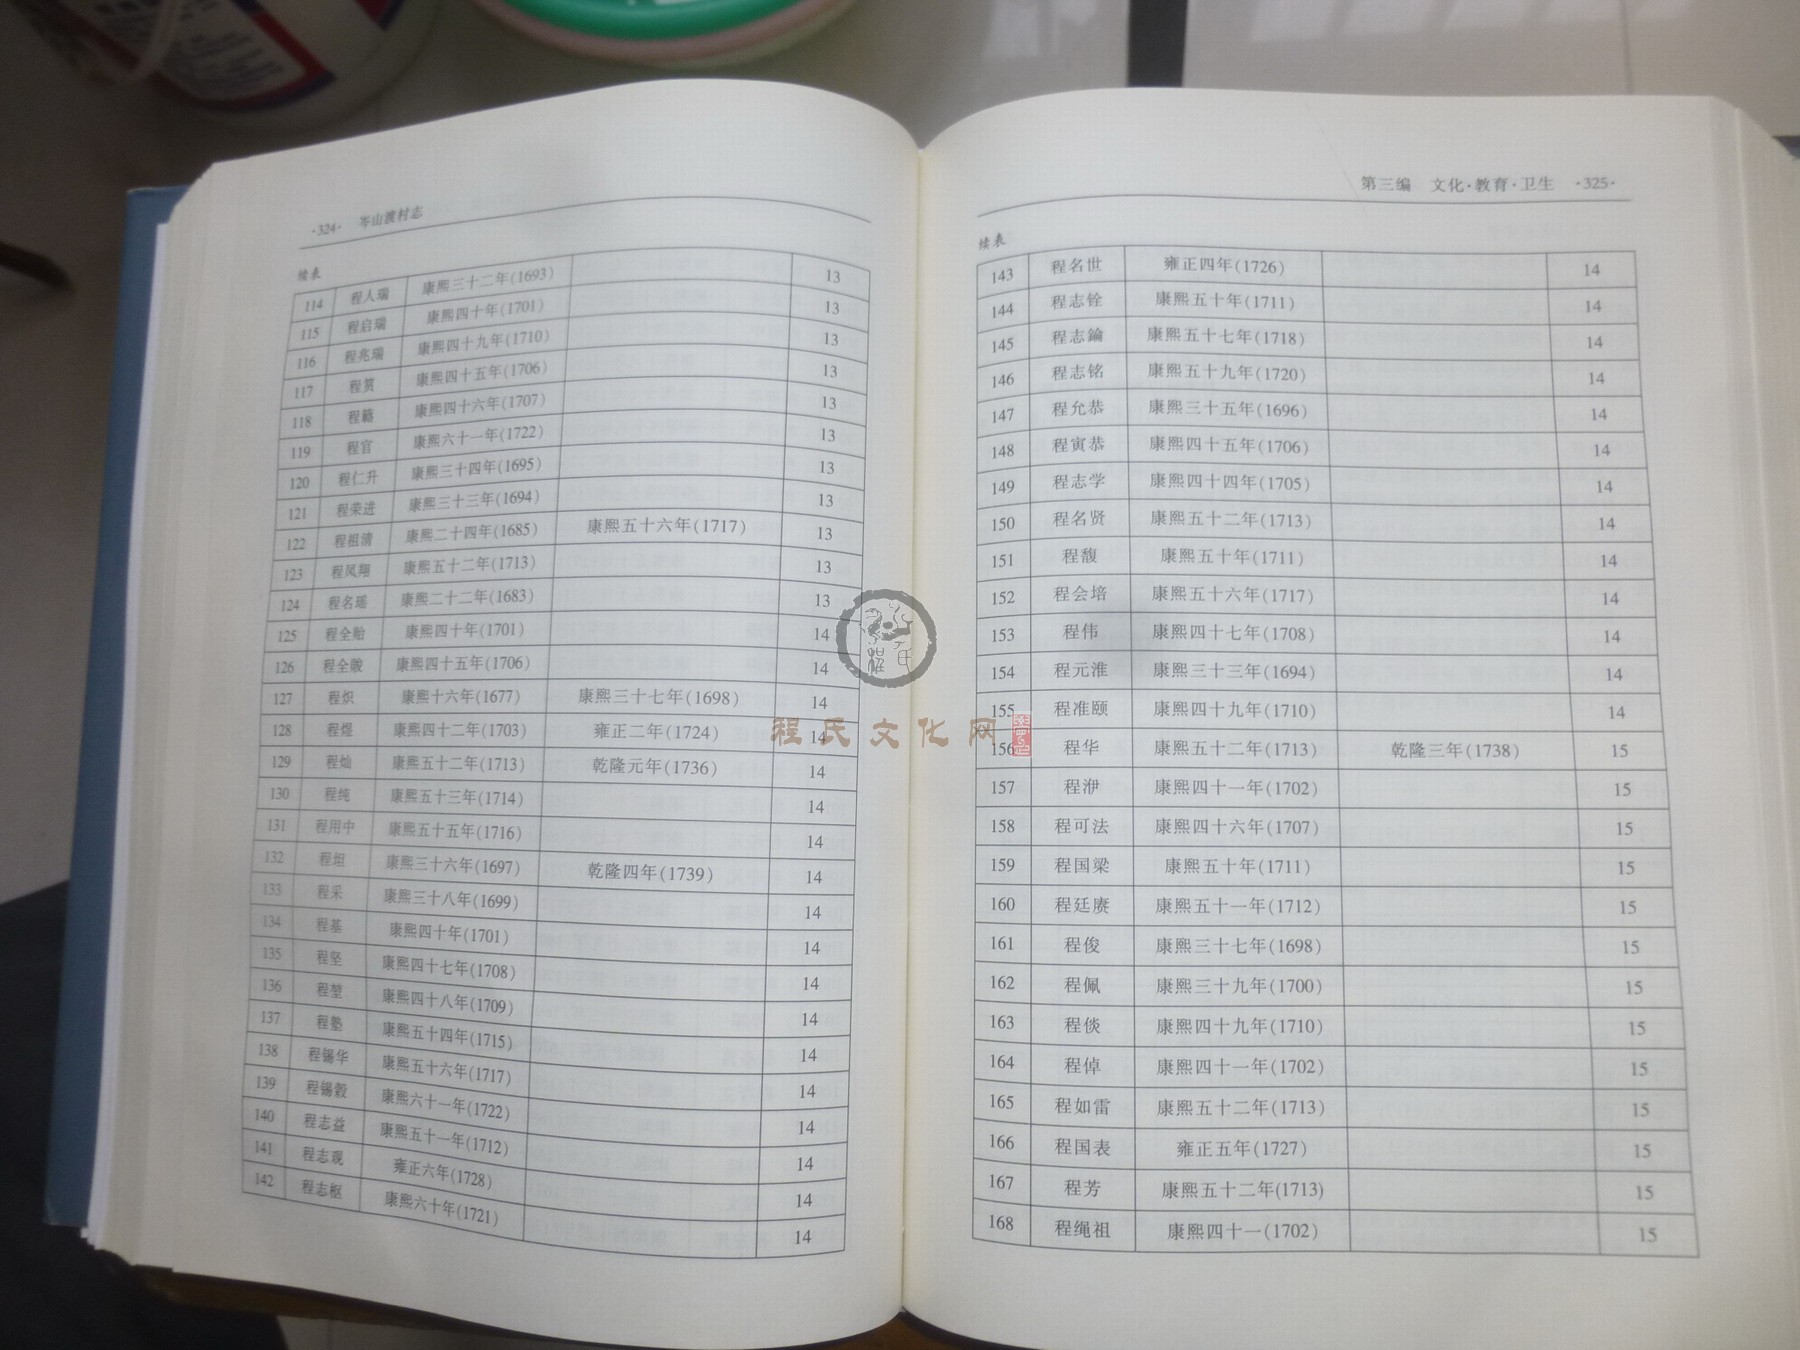 ·324· 岑山渡村志
续表
114 程人瑞 康熙三十二年(1693) 13
115 程启瑞 康熙四十年(1701) 13
116 程兆瑞 康熙四十九年(1710) 13
117 程筼 康熙四十五年(1706) 13
118 程簵 康熙四十六年(1707) 13
119 程官 康熙六十一年(1722) 13
120 程仁升 康熙三十四年(1695) 13
121 程荣进 康熙三十三年(1694) 13
122 程祖清 康熙二十四年(1685) 康熙五十六年(1717) 13
123 程凤翔 康熙五十二年(1713) 13
124 程名瑶 康熙二十二年(1683) 13
125 程全贻 康熙四十年(1701) 14
126 程全 康熙四十五年(1706) 14
127 程炽 康熙十六年(1677) 康熙三十七年(1698) 14
128 程煜 康熙四十二年(1703) 雍正二年(1724) 14
129 程灿 康熙五十二年(1713) 乾隆元年(1736) 14
130 程纯 康熙五十三年(1714) 14
131 程用中 康熙五十五年(1716) 14
132 程坦 康熙三十六年(1697) 乾隆四年(1739) 14
133 程采 康熙三十八年(1699) 14
134 程基 康熙四十年(1701) 14
135 程坚 康熙四十七年(1708) 14
136 程堃 康熙四十八年(1709) 14
137 程塾 康熙五十四年(1715) 14
138 程锡华 康熙五十六年(1717) 14
139 程锡毂 康熙六十一年(1722) 14
140 程志益 康熙五十一年(1712) 14
141 程志观 雍正六年(1728) 14
142 程志枢 康熙六十年(1721) 14
第三编 文化·教育·卫生 ·325·
续表
143 程名世 雍正四年(1726) 14
144 程志铨 康熙五十年(1711) 14
145 程志鑰 康熙五十七年(1718) 14
146 程志铭 康熙五十九年(1720) 14
147 程允恭 康熙三十五年(1696) 14
148 程寅恭 康熙四十五年(1706) 14
149 程志学 康熙四十四年(1705) 14
150 程名贤 康熙五十二年(1713) 14
151 程馥 康熙五十年(1711) 14
152 程会培 康熙五十六年(1717) 14
153 程伟 康熙四十七年(1708) 14
154 程元淮 康熙三十三年(1694) 14
155 程准颐 康熙四十九年(1710) 14
156 程华 康熙五十二年(1713) 乾隆三年(1738) 15
157 程洢 康熙四十一年(1702) 15
158 程可法 康熙四十六年(1707) 15
159 程国梁 康熙五十年(1711) 15
160 程廷赓 康熙五十一年(1712) 15
161 程俊 康熙三十七年(1698) 15
162 程佩 康熙三十九年(1700) 15
163 程倓 康熙四十九年(1710) 15
164 程倬 康熙四十一年(1702) 15
165 程如雷 康熙五十二年(1713) 15
166 程国表 雍正五年(1727) 15
167 程芳 康熙五十二年(1713) 15
168 程绳祖 康熙四十一(1702) 15
程氏文化网